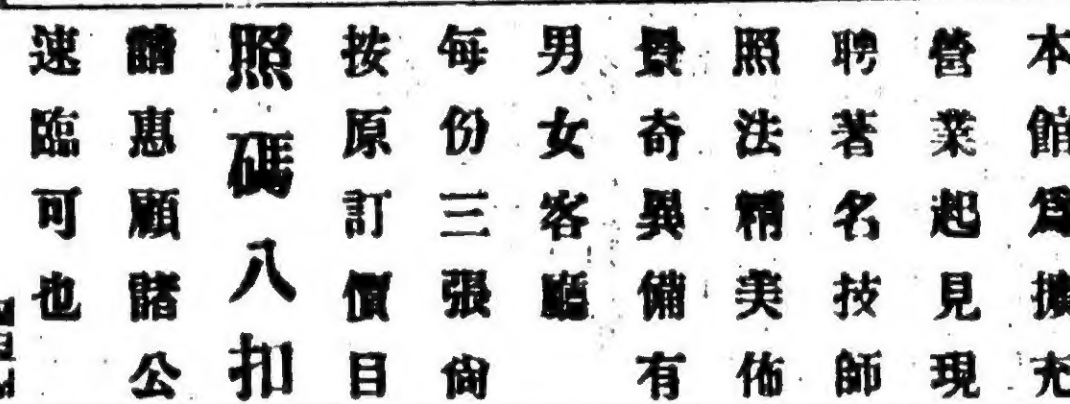 本館爲擴充
營業起見現
聘著名技師
照法精美佈
景奇異備有
男女客廳
每份三張尙
按原訂價目
照碼八扣
請惠顧諸公
速臨可也